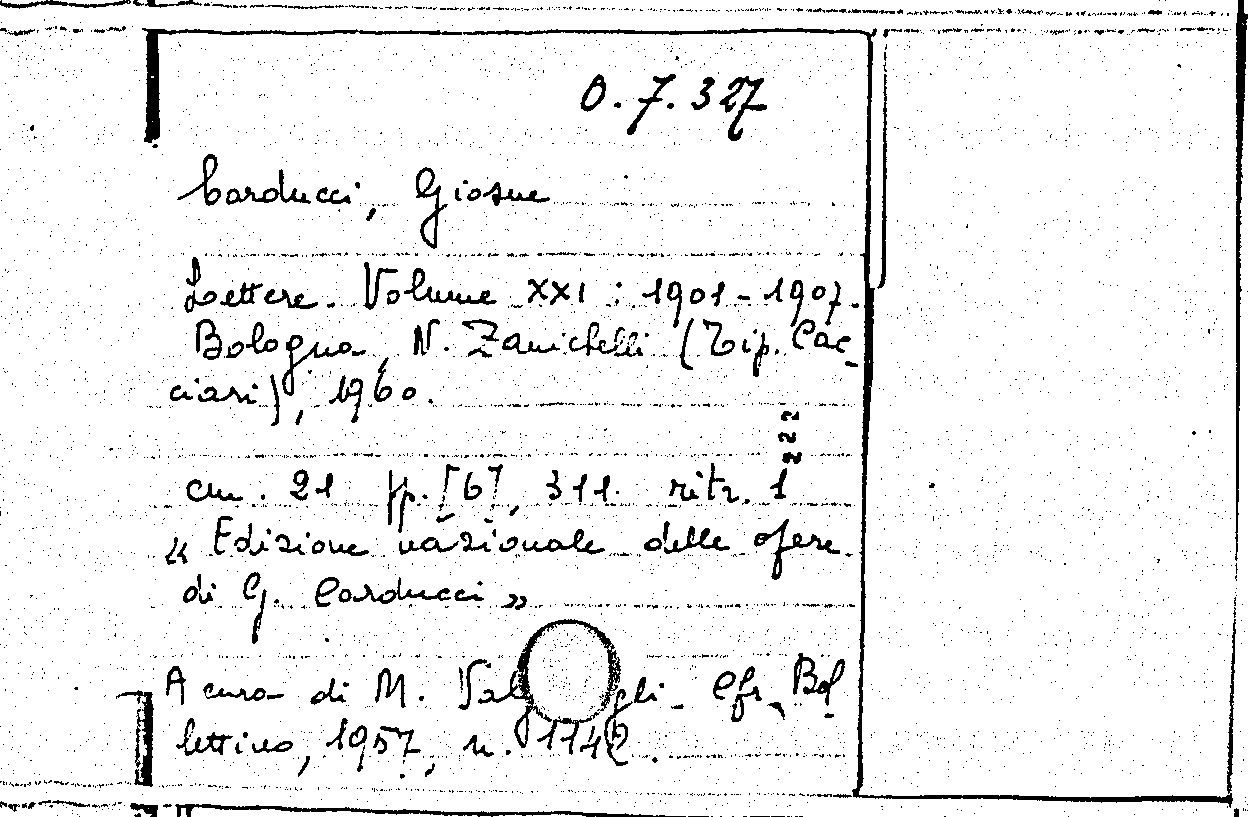 O.7.327
Carducci, Giosue
Lettere. Volume XXI : 1901-1907.
Bologna, N. Zanichelli (Tip. Cac-
ciari), 1960.
222
cm. 21 pp. [6], 311. ritr. 1
« Edizione nazionale delle opere
di G. Carducci »
A cura di M. Cfr. Bol-
lettino, 1957, n. 1142.